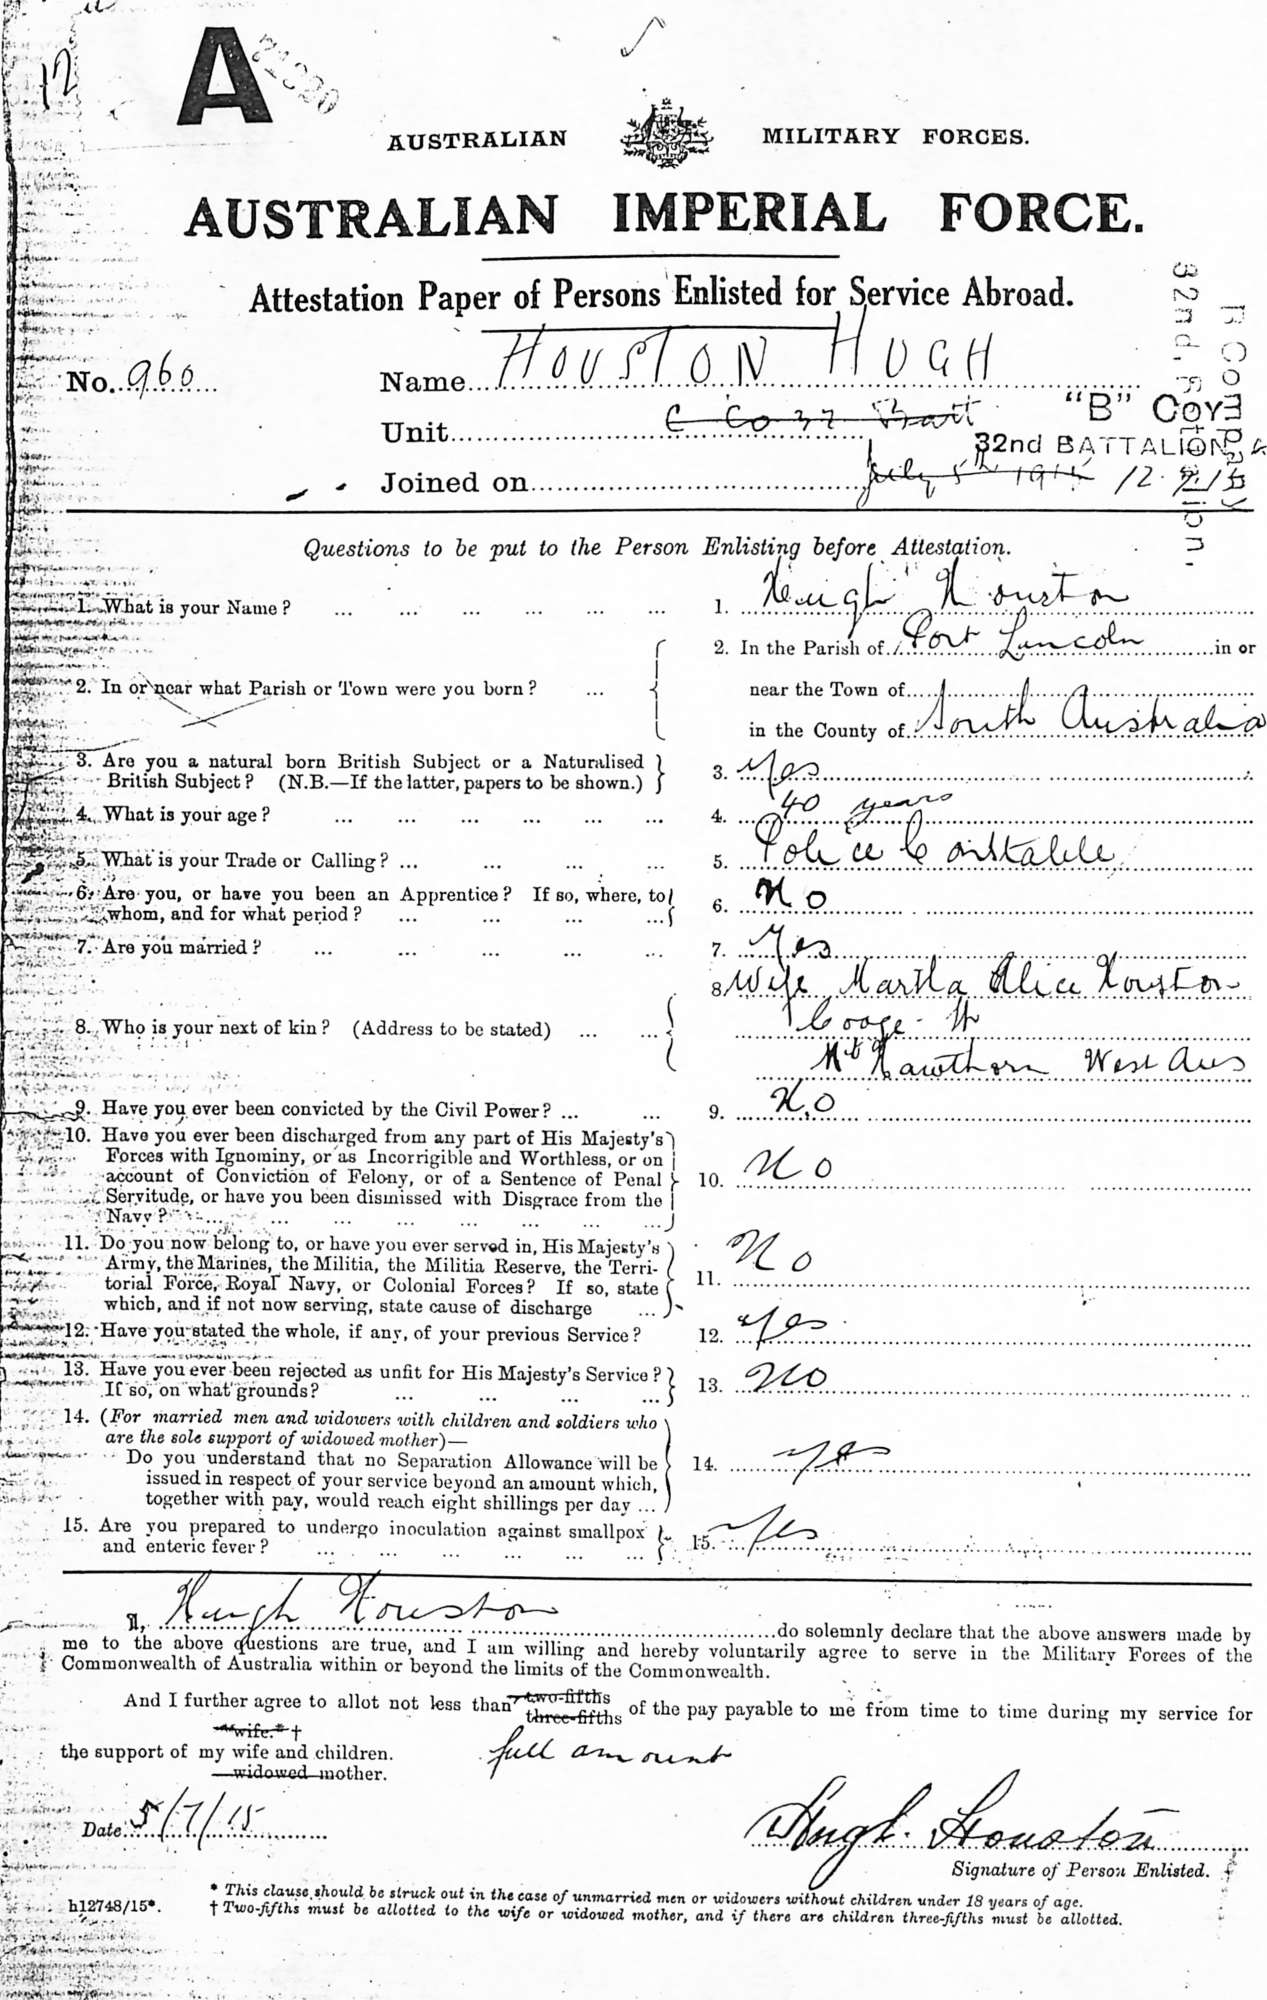 12
A
71820
AUSTRALIAN MILITARY FORCES.
AUSTRALIAN IMPERIAL FORCE.
Attestation Paper of Persons Enlisted for Service Abroad.
No. 960 Name HOUSTON HUGH
Unit C Co 32 Batt "B" COY
32nd BATTALION
B Company
32nd. Battalion.
Joined on July 5th 1915 12.7.15
Questions to be put to the Person Enlisting before Attestation.
1. What is your Name? ... ... ... ... ... ... 1. Hugh Houston
2. In or near what Parish or Town were you born? ... 2. In the Parish of Port Lincoln in or
near the Town of
in the County of South Australia
3. Are you a natural born British Subject or a Naturalised
British Subject? (N.B.—If the latter, papers to be shown.) 3. Yes
4. What is your age? ... ... ... ... ... ... 4. 40 years
5. What is your Trade or Calling? ... ... ... ... 5. Police Constable
6. Are you, or have you been an Apprentice? If so, where, to
whom, and for what period? ... ... ... ... 6. No
7. Are you married? ... ... ... ... ... 7. Yes
8. Who is your next of kin? (Address to be stated) ... ... 8 Wife Martha Alice Houston
Cooge St
Mt Hawthorn West Aus
9. Have you ever been convicted by the Civil Power? ... ... 9. No
10. Have you ever been discharged from any part of His Majesty's
Forces with Ignominy, or as Incorrigible and Worthless, or on
account of Conviction of Felony, or of a Sentence of Penal
Servitude, or have you been dismissed with Disgrace from the
Navy? ... ... ... ... ... ... ... 10. No
11. Do you now belong to, or have you ever served in, His Majesty's
Army, the Marines, the Militia, the Militia Reserve, the Terri-
torial Force, Royal Navy, or Colonial Forces? If so, state
which, and if not now serving, state cause of discharge ... 11. No
12. Have you stated the whole, if any, of your previous Service? 12. Yes
13. Have you ever been rejected as unfit for His Majesty's Service?
If so, on what grounds? ... ... ... ... 13. No
14. (For married men and widowers with children and soldiers who
are the sole support of widowed mother)—
Do you understand that no Separation Allowance will be
issued in respect of your service beyond an amount which,
together with pay, would reach eight shillings per day ... 14. Yes
15. Are you prepared to undergo inoculation against smallpox
and enteric fever? ... ... ... ... ... ... 15. Yes
I, Hugh Houston do solemnly declare that the above answers made by
me to the above questions are true, and I am willing and hereby voluntarily agree to serve in the Military Forces of the
Commonwealth of Australia within or beyond the limits of the Commonwealth.
And I further agree to allot not less than two-fifths
three-fifths of the pay payable to me from time to time during my service for
wife.*†
the support of my wife and children. full amount
widowed mother.
Date 5/7/15
Hugh Houston
Signature of Person Enlisted.
h12748/15*.
* This clause should be struck out in the case of unmarried men or widowers without children under 18 years of age.
† Two-fifths must be allotted to the wife or widowed mother, and if there are children three-fifths must be allotted.